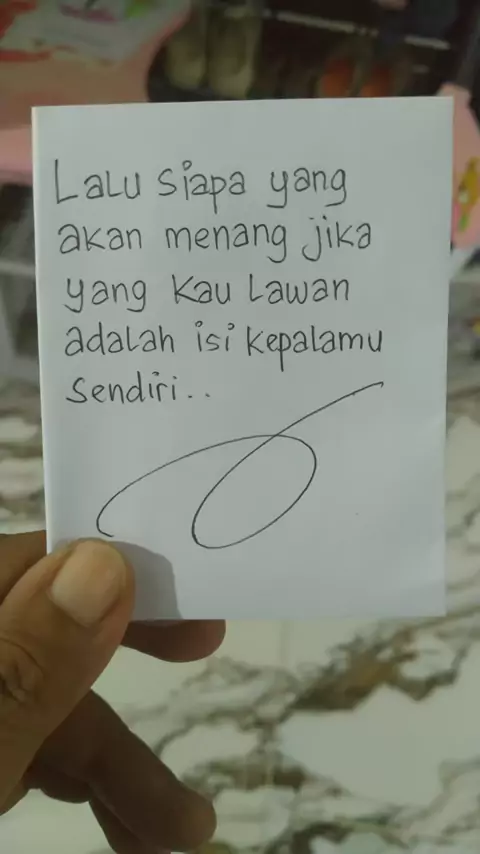 Lalu siapa yang
akan menang jika
yang kau lawan
adalah isi kepalamu
sendiri..